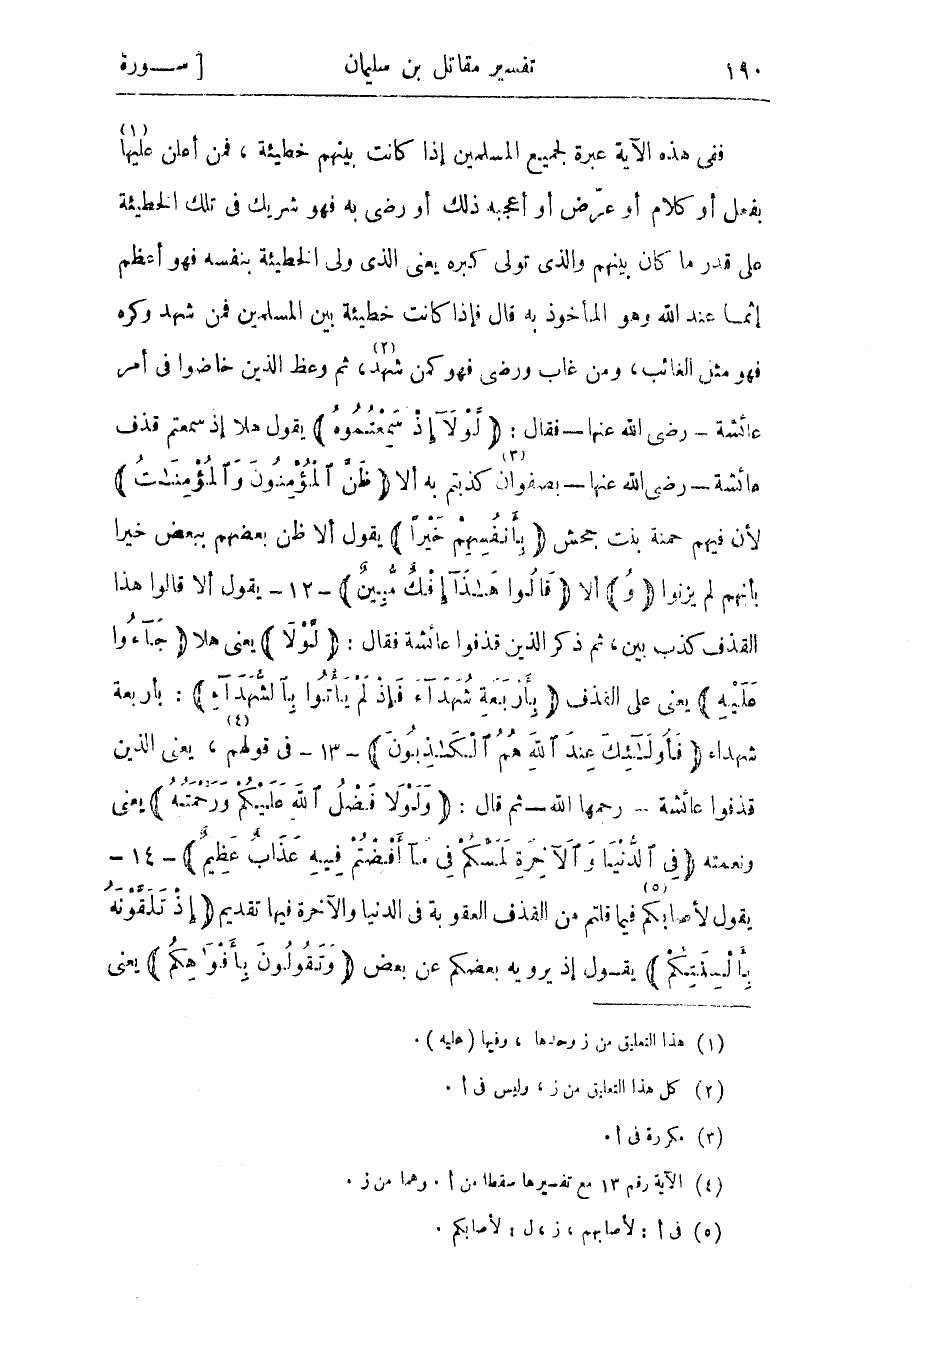 ١٩٠ تفسير مقاتل بن سليمان [ سـورة
ففى هذه الآية عبرة لجميع المسلمين إذا كانت بينهم خطيئة ، فمن أعلن عليها(١)
بفعل أو كلام أو عرّض أو أعجبه ذلك أو رضى به فهو شريك فى تلك الخطيئة
على قدر ما كان بينهم والذى تولى كبره يعنى الذى ولى الخطيئة بنفسه فهو أعظم
إثمـا عند الله وهو المأخوذ به قال فإذا كانت خطيئة بين المسلمين فمن شهد وكره
فهو مثل الغائب ، ومن غاب ورضى فهو كمن شهد(٢) ، ثم وعظ الذين خاضوا فى أمر
عائشة – رضى الله عنها – فقال : ﴿ لَّوْلَآ إِذْ سَمِعْتُمُوهُ ﴾ يقول هلا إذ سمعتم قذف
عائشة – رضى الله عنها – بصفوان(٣) كذبتم به ألا ﴿ ظَنَّ ٱلْمُؤْمِنُونَ وَٱلْمُؤْمِنَـٰتُ ﴾
لأن فيهم حمنة بنت جحش ﴿ بِأَنفُسِهِمْ خَيْرًا ﴾ يقول ألا ظن بعضهم ببعض خيرا
بأنهم لم يزنوا ﴿ وَ ﴾ ألا ﴿ قَالُوا هَـٰذَآ إِفْكٌ مُّبِينٌ ﴾ – ١٢ – يقول ألا قالوا هذا
القذف كذب بين ، ثم ذكر الذين قذفوا عائشة فقال : ﴿ لَّوْلَا ﴾ يعنى هلا ﴿ جَآءُوا
عَلَيْهِ ﴾ يعنى على القذف ﴿ بِأَرْبَعَةِ شُهَدَآءَ فَإِذْ لَمْ يَأْتُوا بِٱلشُّهَدَآءِ ﴾ : بأربعة
شهداء ﴿ فَأُولَـٰٓئِكَ عِندَ ٱللَّهِ هُمُ ٱلْكَـٰذِبُونَ ﴾ – ١٣ – فى قولهم(٤) ، يعنى الذين
قذفوا عائشة – رحمها الله – ثم قال : ﴿ وَلَوْلَا فَضْلُ ٱللَّهِ عَلَيْكُمْ وَرَحْمَتُهُ ﴾ يعنى
ونعمته ﴿ فِى ٱلدُّنْيَا وَٱلْآخِرَةِ لَمَسَّكُمْ فِى مَآ أَفَضْتُمْ فِيهِ عَذَابٌ عَظِيمٌ ﴾ – ١٤ –
يقول لأصابكم(٥) فيما قلتم من القذف العقوبة فى الدنيا والآخرة فيها تقديم ﴿ إِذْ تَلَقَّوْنَهُ
بِأَلْسِنَتِكُمْ ﴾ يقـول إذ يرويه بعضكم عن بعض ﴿ وَتَقُولُونَ بِأَفْوَاهِكُم ﴾ يعنى
(١) هذا التعليق من ز وحدها ، وفيها ( عليه ) .
(٢) كل هذا التعليق من ز ، وليس فى أ .
(٣) مكررة فى أ .
(٤) الآية رقم ١٣ مع تفسيرها سقطا من أ . وهما من ز .
(٥) فى أ : لأصابهم ، ز ، ل : لأصابكم .